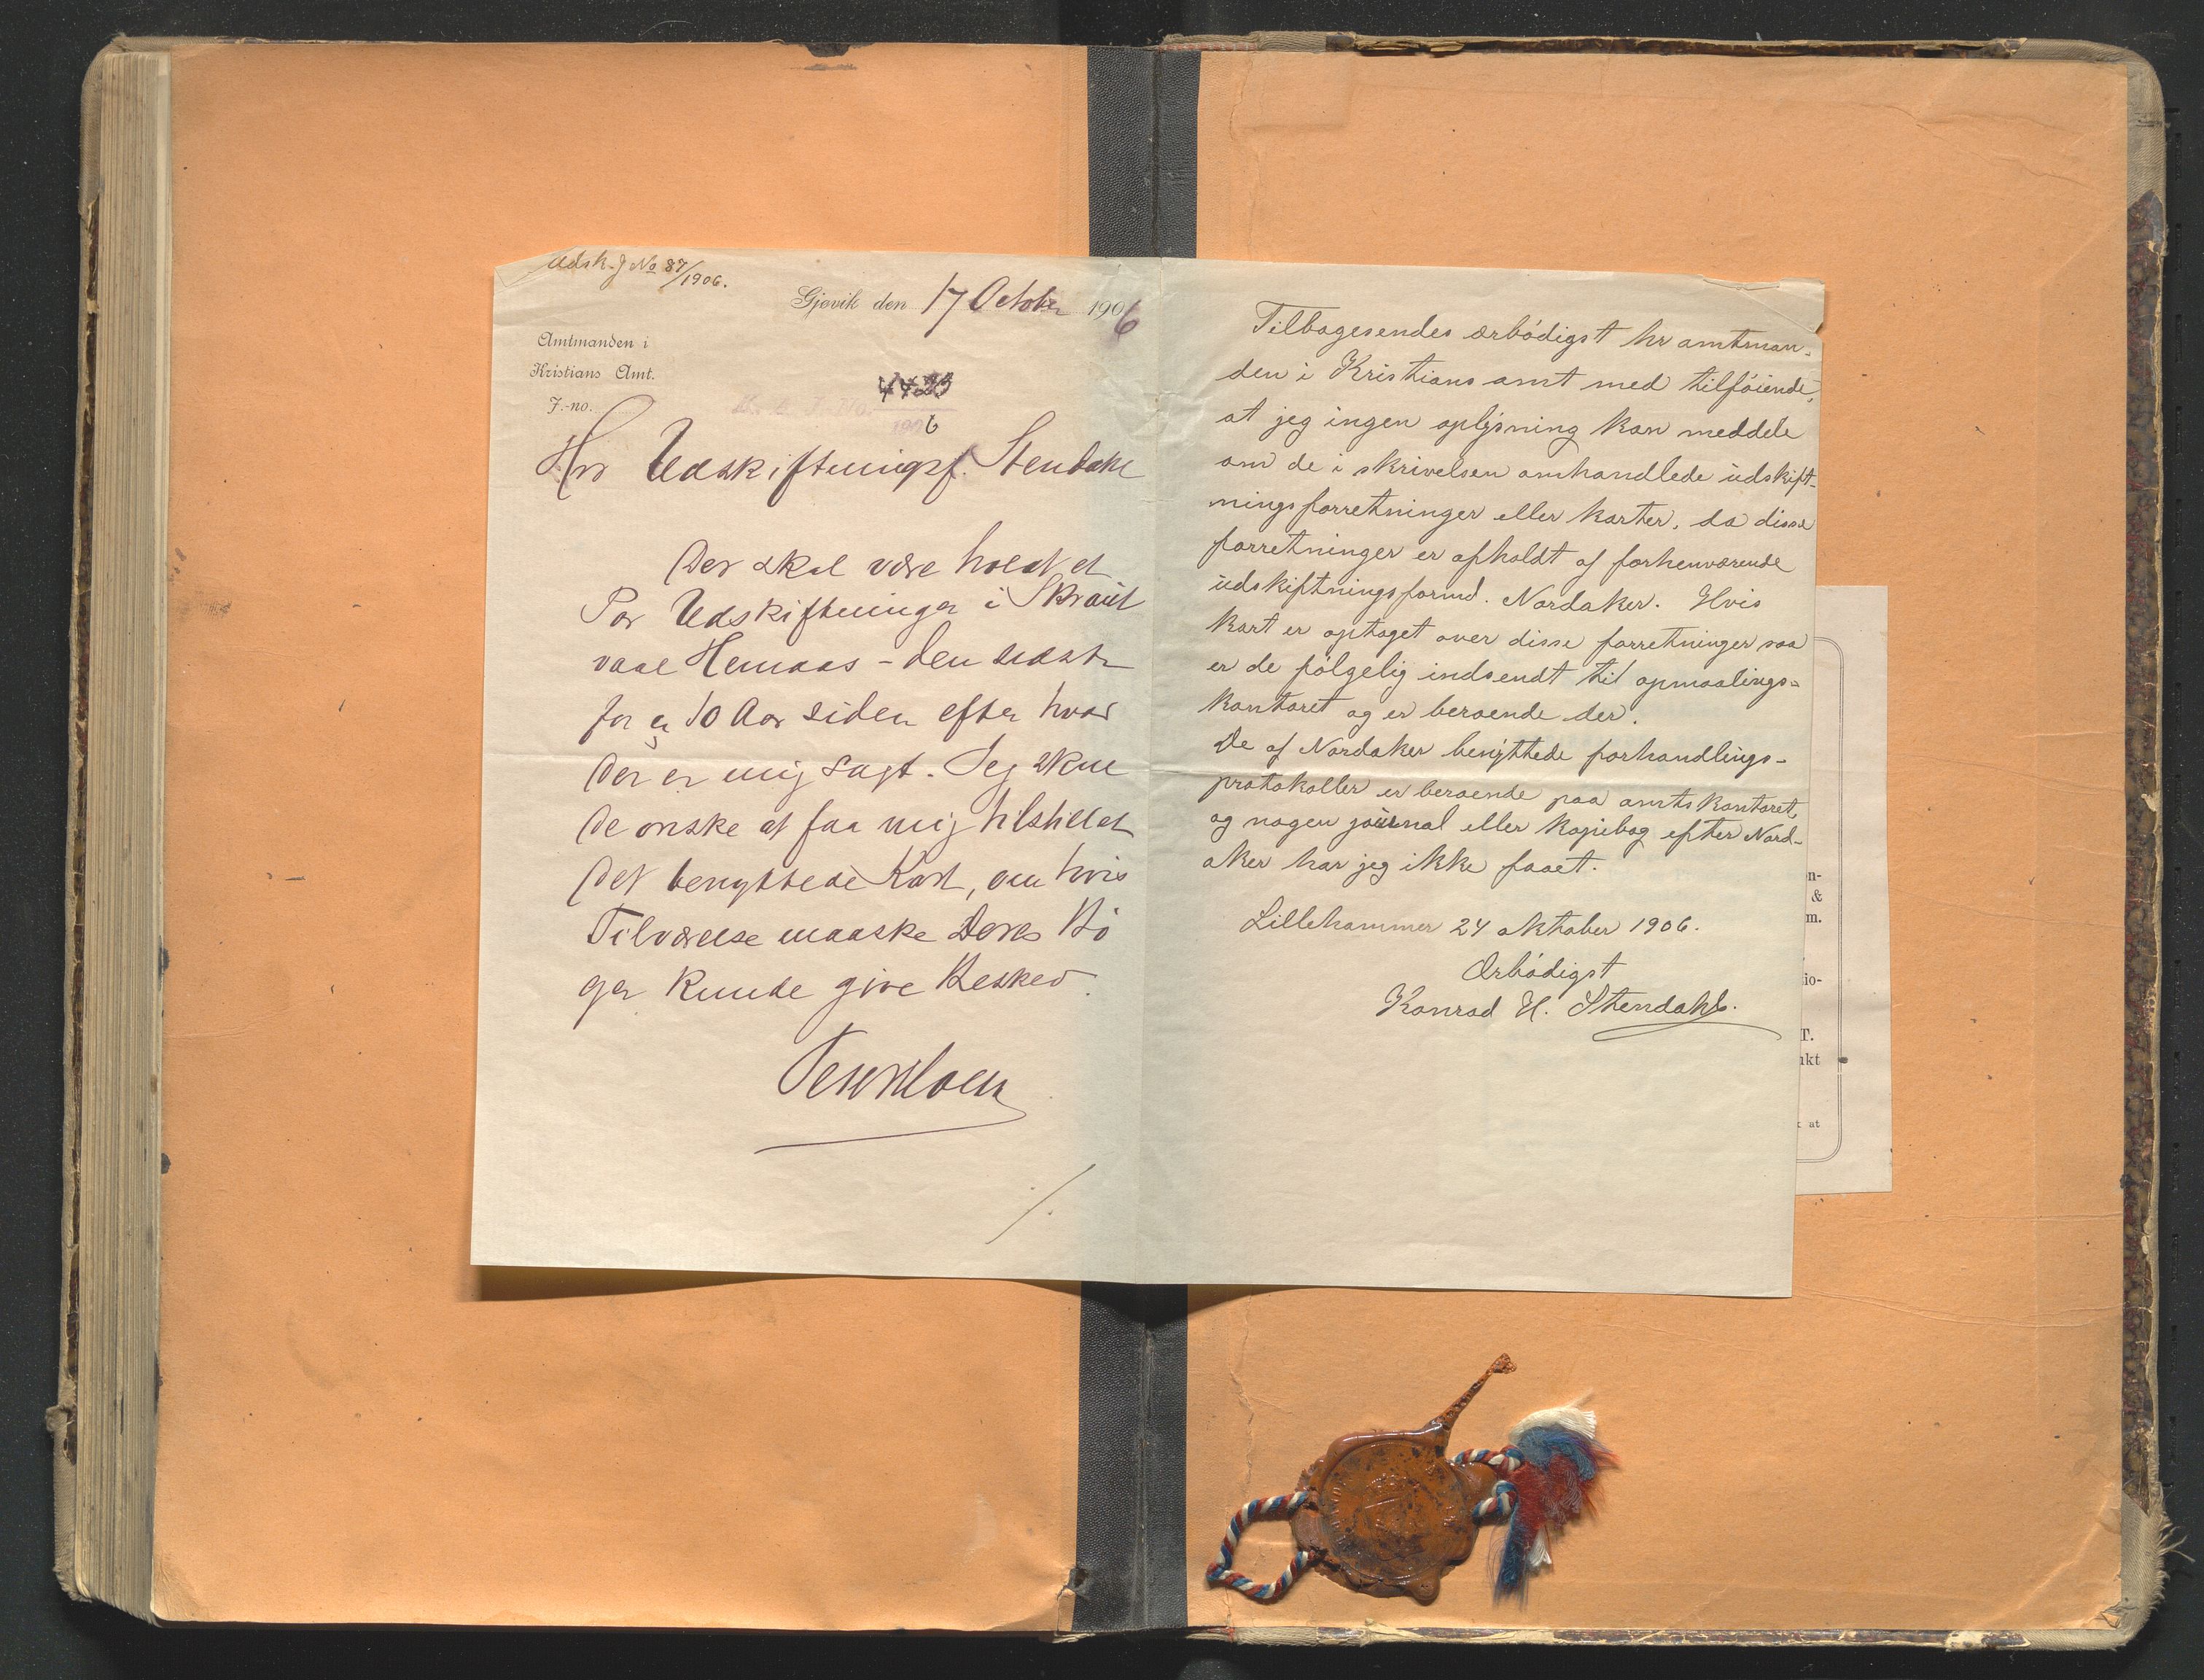 Udsk. J No 87/1906.
Gjøvik den 17 October 1906
Amtmanden i
Kristians Amt.
J.-no.
4423
1906
Hr Udskiftningsf. Stendahl
Der skal være holdt et
Par Udskiftninger i
den sidste
for ca 10 Aar siden efter hvad
der er mig sagt. Jeg skul
de ønske at faa mig tilstillet
det benyttede Kart, om hvis
Tilværelse maaske Deres Bø
ger kunde give Besked.
/.
Tilbagesendes ærbødigst hr amtman-
den i Kristians amt med tilføiende,
at jeg ingen oplysning kan meddele
om de i skrivelsen omhandlede udskift-
ningsforretninger eller karter, da disse
forretninger er afholdt af forhenværende
udskiftningsformd. Nordaker. Hvis
kart er optaget over disse forretninger saa
er de følgelig indsendt til opmaalings-
kontoret og er beroende der.
De af Nordaker benyttede forhandlings-
protokoller er beroende paa amtskontoret,
og nogen journal eller kopiebog efter Nord-
aker har jeg ikke faaet.
Lillehammer 24 oktober 1906.
Ærbødigst
Konrad H. Stendahl.
n-
&
m.
io-
T.
ikt
at